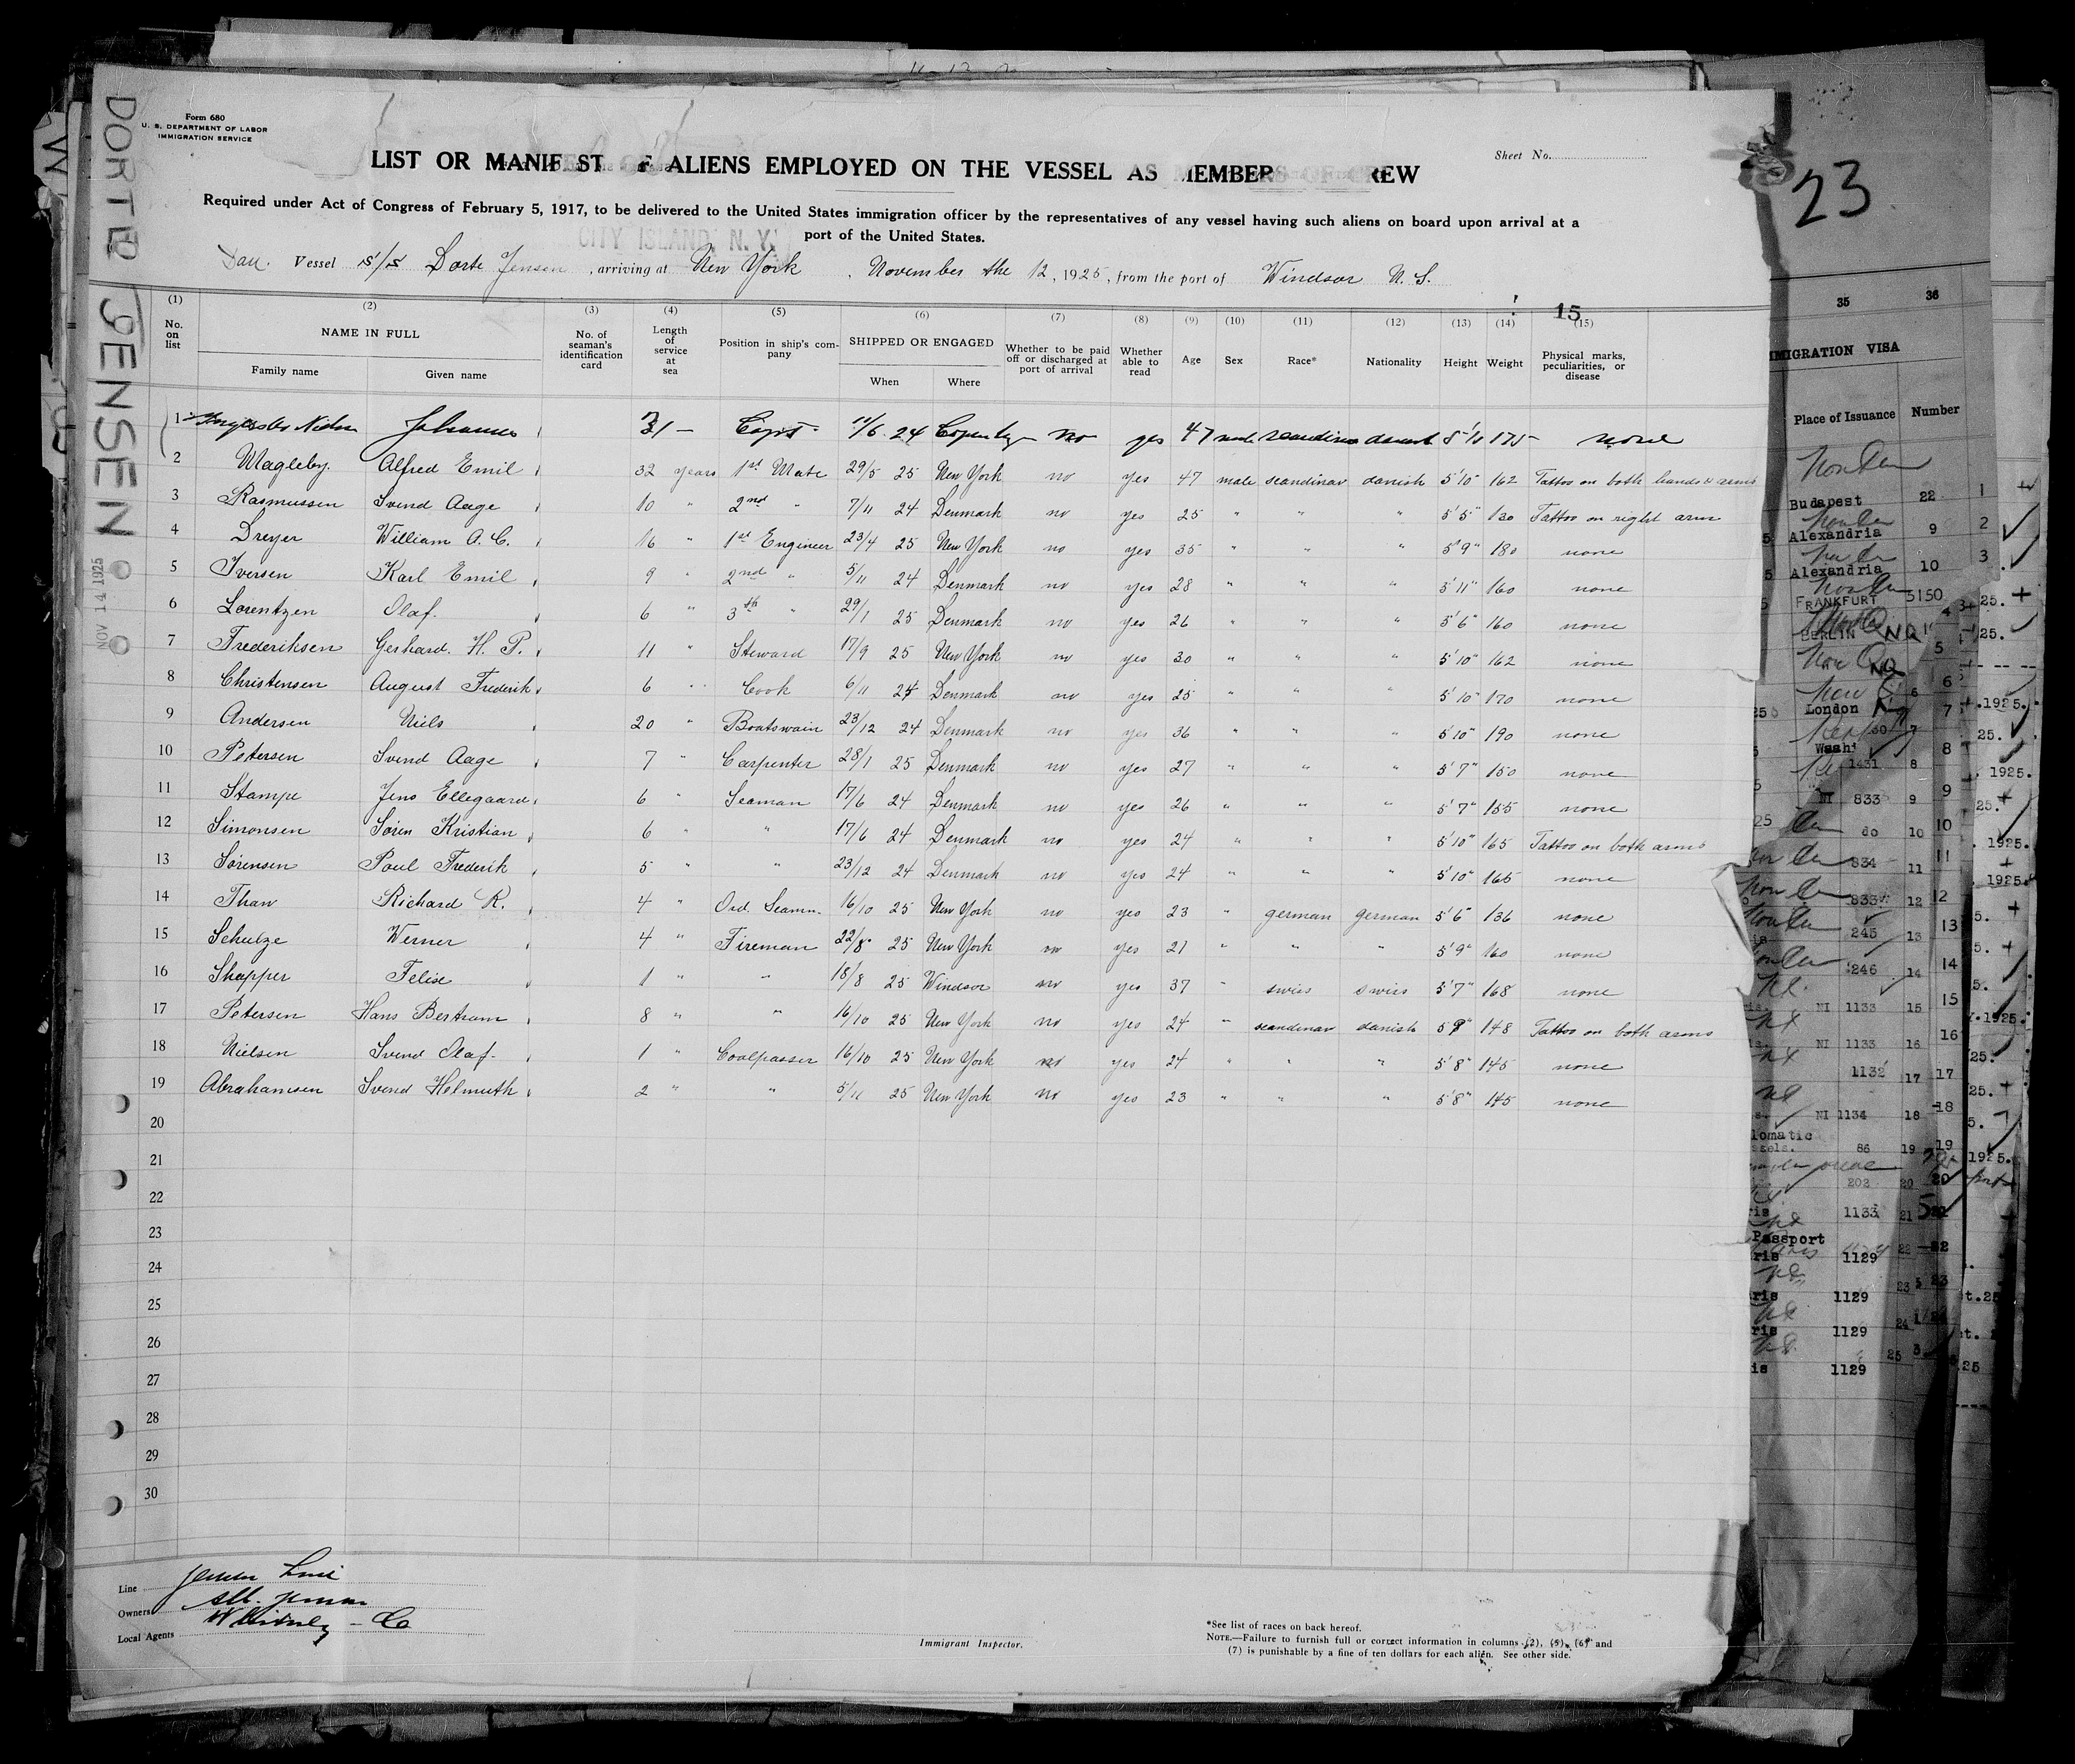 DORTE JENSEN
NOV 14 1925
Form 680
U. S. DEPARTMENT OF LABOR
IMMIGRATION SERVICE
Sheet No.
LIST OR MANIFEST OF ALIENS EMPLOYED ON THE VESSEL AS MEMBERS OF CREW
Required under Act of Congress of February 5, 1917, to be delivered to the United States immigration officer by the representatives of any vessel having such aliens on board upon arrival at a
port of the United States.
CITY ISLAND, N. Y.
Dan. Vessel S/S Dorte Jensen, arriving at New York, November the 12, 1925, from the port of Windsor N. S.
15
(1) (2) (3) (4) (5) (6) (7) (8) (9) (10) (11) (12) (13) (14) (15)
No. on list NAME IN FULL Family name Given name No. of seaman's identification card Length of service at sea Position in ship's company SHIPPED OR ENGAGED When Where Whether to be paid off or discharged at port of arrival Whether able to read Age Sex Race* Nationality Height Weight Physical marks, peculiarities, or disease
1 Johannes 31 - Capt. 11/6 24 no yes 47 male 5'10 175 none
2 Magleby. Alfred Emil 32 years 1st Mate 29/5 25 New York no yes 47 male scandinav danish 5'10" 162 Tattoo on both hands & arms
3 Rasmussen Svend Aage 10 " 2nd " 7/11 24 Denmark no yes 25 " " " 5'5" 130 Tattoo on right arm
4 Dreyer William A. C. 16 " 1st Engineer 23/4 25 New York no yes 35 " " " 5'9" 180 none
5 Iversen Karl Emil 9 " 2nd " 5/11 24 Denmark no yes 28 " " " 5'11" 160 none
6 Lorentzen Olaf. 6 " 3th " 29/1 25 Denmark no yes 26 " " " 5'6" 160 none
7 Frederiksen Gerhard. H. P. 11 " Steward 17/9 25 New York no yes 30 " " " 5'10" 162 none
8 Christensen August Frederik 6 " Cook 6/11 24 Denmark no yes 25 " " " 5'10" 170 none
9 Andersen Niels 20 " Boatswain 23/12 24 Denmark no yes 36 " " " 5'10" 190 none
10 Petersen Svend Aage 7 " Carpenter 28/1 25 Denmark no yes 27 " " " 5'7" 150 none
11 Stampe Jens Ellegaard 6 " Seaman 17/6 24 Denmark no yes 26 " " " 5'7" 155 none
12 Simonsen Sören Kristian 6 " " 17/6 24 Denmark no yes 24 " " " 5'10" 165 Tattoo on both arms
13 Sørensen Poul Frederik 5 " " 23/12 24 Denmark no yes 24 " " " 5'10" 165 none
14 Thaw Richard K. 4 " Ord. Seamn. 16/10 25 New York no yes 23 " german german 5'6" 136 none
15 Schulze Werner 4 " Fireman 22/8 25 New York no yes 21 " " " 5'9" 160 none
16 Shapper Felix 1 " " 18/8 25 Windsor no yes 37 " swies swies 5'7" 168 none
17 Petersen Hans Bertram 8 " " 16/10 25 New York no yes 24 " scandinav danish 5'9" 148 Tattoo on both arms
18 Nielsen Svend Olaf. 1 " Coalpasser 16/10 25 New York no yes 24 " " " 5'8" 145 none
19 Abrahamsen Svend Helmuth 2 " " 5/11 25 New York no yes 23 " " " 5'8" 145 none
20
21
22
23
24
25
26
27
28
29
30
Line Jensen Line
Owners
Local Agents
Immigrant Inspector.
*See list of races on back hereof.
NOTE.—Failure to furnish full or correct information in columns (2), (5), (6) and
(7) is punishable by a fine of ten dollars for each alien. See other side.
23
35 36
IMMIGRATION VISA
Place of Issuance Number
Budapest 22 1
Alexandria 9 2
Alexandria 10 3
FRANKFURT 5150
BERLIN
London
1431 8
NI 833 9
do 10
834 11
833 12
245 13
246 14
NI 1133 15
NI 1133 16
1132 17
NI 1134 18
86 19
202 20
1133 21
Passport
1129
1129
1129
1129